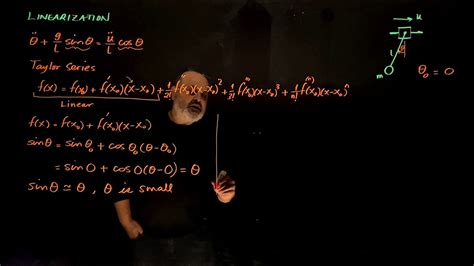 LINEARIZATION
θ̈ + g/l sinθ = ü/l cosθ
Taylor Series
f(x) = f(x₀) + f'(x₀)(x-x₀) + 1/2! f''(x₀)(x-x₀)² + 1/3! f'''(x₀)(x-x₀)³ + 1/n! f⁽ⁿ⁾(x₀)(x-x₀)ⁿ
Linear
f(x) = f(x₀) + f'(x₀)(x-x₀)
sinθ = sinθ₀ + cosθ₀(θ-θ₀)
= sin0 + cos0(θ-0) = θ
sinθ ≃ θ, θ is small
u
l
θ
m
θ₀ = 0